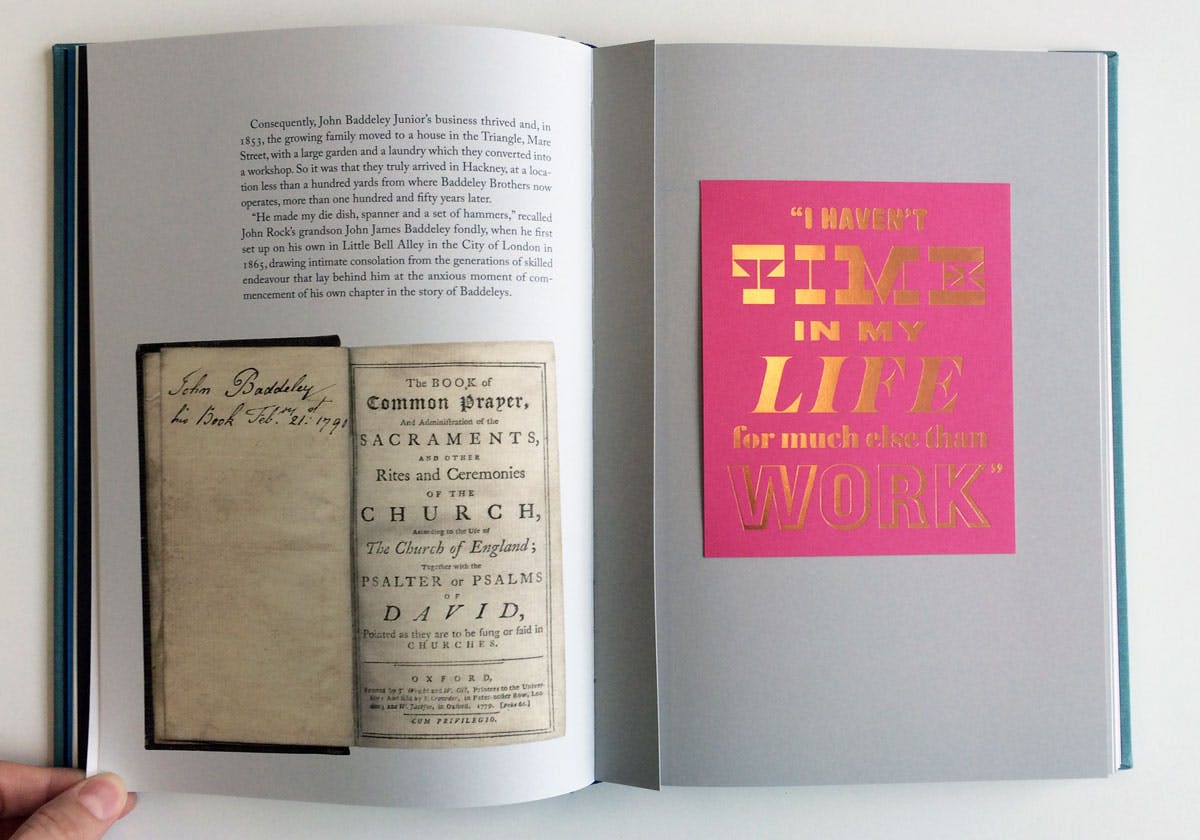 Consequently, John Baddeley Junior's business thrived and, in
1853, the growing family moved to a house in the Triangle, Mare
Street, with a large garden and a laundry which they converted into
a workshop. So it was that they truly arrived in Hackney, at a loca-
tion less than a hundred yards from where Baddeley Brothers now
operates, more than one hundred and fifty years later.
"He made my die dish, spanner and a set of hammers," recalled
John Rock's grandson John James Baddeley fondly, when he first
set up on his own in Little Bell Alley in the City of London in
1865, drawing intimate consolation from the generations of skilled
endeavour that lay behind him at the anxious moment of com-
mencement of his own chapter in the story of Baddeleys.
John Baddeley
his Book Feb.ry 21.st 1790
The BOOK of
Common Prayer,
And Adminiſtration of the
SACRAMENTS,
AND OTHER
Rites and Ceremonies
OF THE
CHURCH,
According to the Uſe of
The Church of England;
Together with the
PSALTER or PSALMS
OF
DAVID,
Pointed as they are to be ſung or ſaid in
CHURCHES.
OXFORD,
Printed by J. Wright and W. Gill, Printers to the Univer-
ſity: And ſold by S. Crowder, in Pater-noſter Row, Lon-
don; and W. Jackſon, in Oxford. 1779.
CUM PRIVILEGIO.
"I HAVEN'T
TIME
IN MY
LIFE
for much else than
WORK"